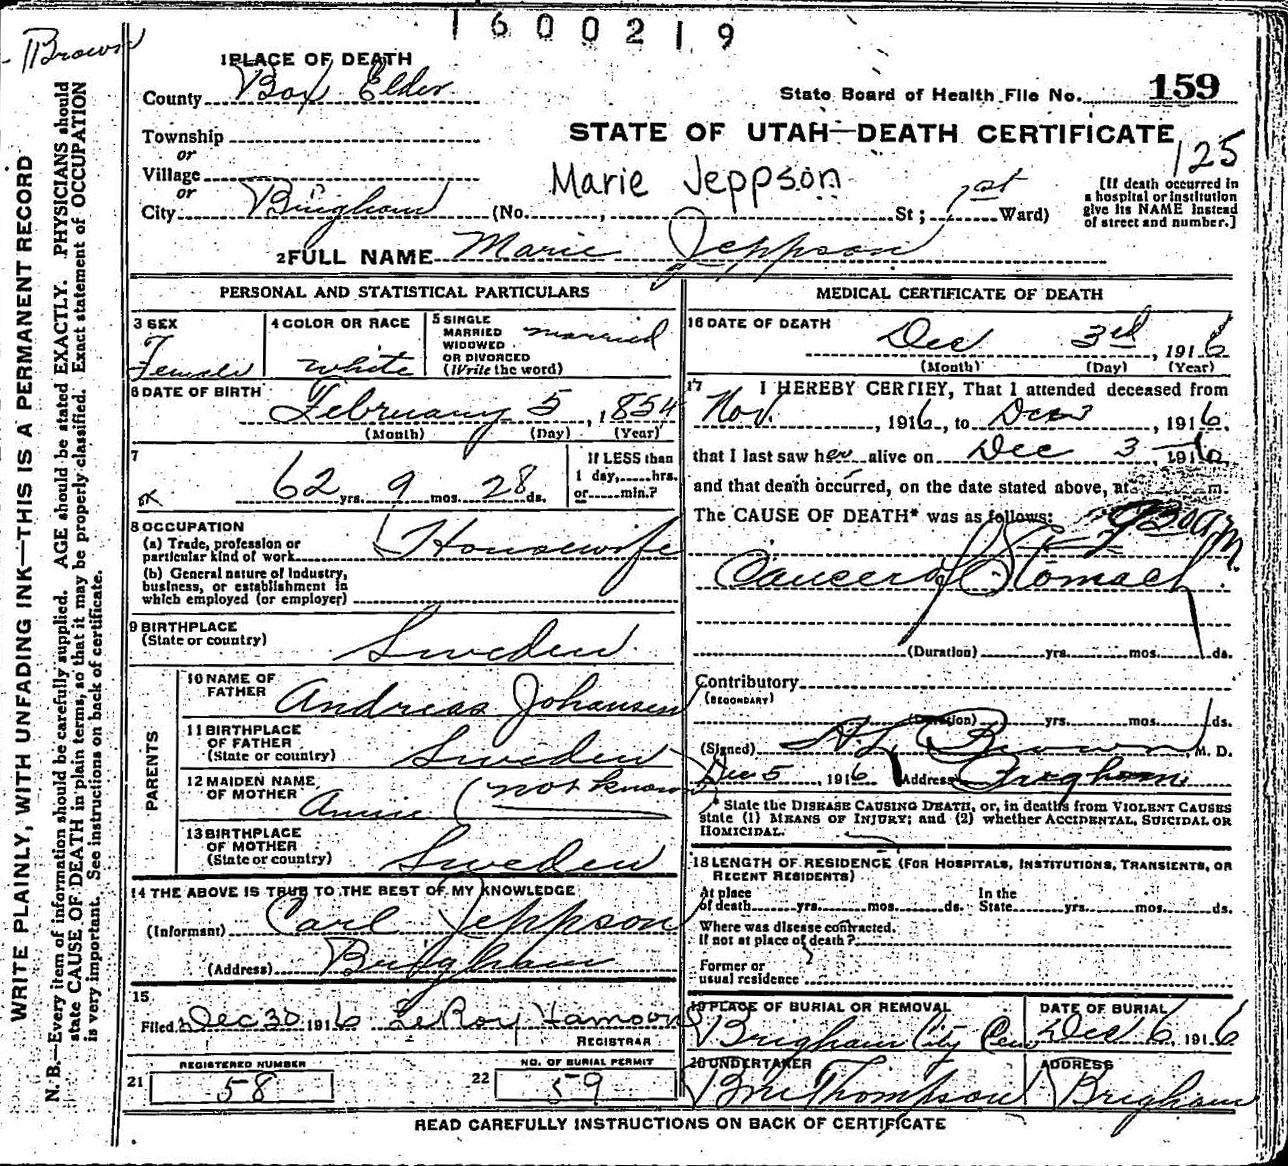 1600219
Brown
1 PLACE OF DEATH
County Box Elder
State Board of Health File No. 159
Township
or
STATE OF UTAH—DEATH CERTIFICATE
125
Village
or
Marie Jeppson
City Brigham (No. , St; 1st Ward)
[If death occurred in a hospital or institution give its NAME instead of street and number.]
2 FULL NAME Marie Jeppson
PERSONAL AND STATISTICAL PARTICULARS
3 SEX
Female
4 COLOR OR RACE
white
5 SINGLE
MARRIED
WIDOWED
OR DIVORCED
(Write the word)
married
6 DATE OF BIRTH
February 5, 1854
(Month) (Day) (Year)
7
62 yrs. 9 mos. 28 ds.
If LESS than
1 day, hrs.
or min.?
8 OCCUPATION
(a) Trade, profession or
particular kind of work Housewife
(b) General nature of industry,
business, or establishment in
which employed (or employer)
9 BIRTHPLACE
(State or country) Sweden
PARENTS
10 NAME OF
FATHER Andreas Johansen
11 BIRTHPLACE
OF FATHER
(State or country) Sweden
12 MAIDEN NAME
OF MOTHER Annie (not known)
13 BIRTHPLACE
OF MOTHER
(State or country) Sweden
14 THE ABOVE IS TRUE TO THE BEST OF MY KNOWLEDGE
(Informant) Carl Jeppson
(Address) Brigham
15
Filed Dec 30 1916 LeRoy
REGISTRAR
REGISTERED NUMBER
21 58
NO. OF BURIAL PERMIT
22 59
MEDICAL CERTIFICATE OF DEATH
16 DATE OF DEATH
Dec 3rd, 1916
(Month) (Day) (Year)
17 I HEREBY CERTIFY, That I attended deceased from
Nov. , 1916, to Dec 3, 1916,
that I last saw her alive on Dec 3 1916
and that death occurred, on the date stated above, at m.
The CAUSE OF DEATH* was as follows:
Cancer of Stomach
(Duration) yrs. mos. ds.
Contributory
(SECONDARY)
(Duration) yrs. mos. ds.
(Signed) Brown M. D.
Dec 5, 1916 (Address) Brigham
* State the DISEASE CAUSING DEATH, or, in deaths from VIOLENT CAUSES
state (1) MEANS OF INJURY; and (2) whether ACCIDENTAL, SUICIDAL OR
HOMICIDAL.
18 LENGTH OF RESIDENCE (FOR HOSPITALS, INSTITUTIONS, TRANSIENTS, OR
RECENT RESIDENTS)
At place
of death yrs. mos. ds.
In the
State yrs. mos. ds.
Where was disease contracted.
If not at place of death?
Former or
usual residence
19 PLACE OF BURIAL OR REMOVAL
Brigham City Cem
DATE OF BURIAL
Dec 6, 1916
20 UNDERTAKER
Thompson
ADDRESS
Brigham
READ CAREFULLY INSTRUCTIONS ON BACK OF CERTIFICATE
WRITE PLAINLY, WITH UNFADING INK—THIS IS A PERMANENT RECORD
N. B.—Every item of information should be carefully supplied. AGE should be stated EXACTLY. PHYSICIANS should
state CAUSE OF DEATH in plain terms, so that it may be properly classified. Exact statement of OCCUPATION
is very important. See instructions on back of certificate.